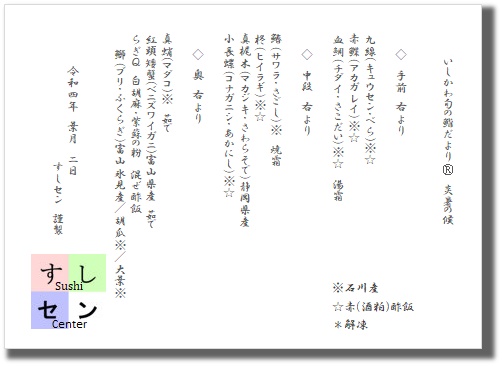 いしかわ旬の鮨だより® 炎暑の候
◇ 手前 右より
九線(キュウセン・べら)※☆
赤鰈(アカガレイ)※☆
血鯛(チダイ・さこだい)※☆ 湯霜
◇ 中段 右より
鰆(サワラ・さごし)※ 焼霜
柊(ヒイラギ)※☆
真梶木(マカジキ・さわらそて)静岡県産
小長螺(コナガニシ・あかにし)※☆
◇ 奥 右より
真蛸(マダコ)※ 茹で
紅頭矮蟹(ベニズワイガニ)富山県産 茹で
らぎQ 白胡麻・紫蘇の粉 混ぜ酢飯
鰤(ブリ・ふくらぎ)富山 氷見産／胡瓜※／大葉※
令和四年 葉月 二日
すしセン 謹製
※石川産
☆赤(酒粕)酢飯
＊解凍
すし
Sushi
セン
Center